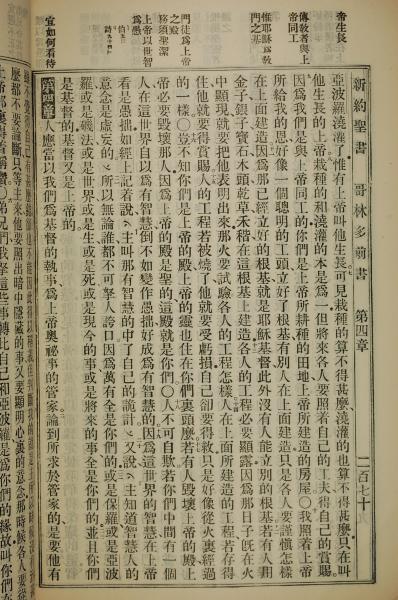 新約聖書 哥林多前書 第四章 二百七十
帝生長
傳教者與上
帝同工
惟耶穌為教
門之基
門徒為上帝
之殿
務須聖潔
上帝以世智
為愚
宜如何看待
亞波羅澆灌了惟有上帝叫他生長可見栽種的算不得甚麼澆灌的也算不得甚麼只在叫
他生長的上帝栽種的和澆灌的本是為一但將來各人要照着自己的工夫得自己的賞賜
因為我們是與上帝同工的你們是上帝所耕種的田地上帝所建造的房屋〇我照着上帝
所給我的恩好像一個聰明的工頭立好了根基有別人在上面建造只是各人要謹慎怎樣
在上面建造因為那已經立好的根基就是耶穌基督此外沒有人能立別的根基若有人用
金子銀子寶石木頭乾草禾稭在這根基上建造各人的工程必要顯露因為那日子旣在火
中顯現就要把他表明出來那火要試驗各人的工程怎樣人在上面所建造的工程若存得
住他就要得賞賜人的工程若被燒了他就要受虧損自己卻要得救只是好像從火裏經過
的一樣〇豈不知你們是上帝的殿上帝的靈也住在你們裏頭麼若有人毀壞上帝的殿上
帝必要毀壞那人因為上帝的殿是聖的這殿就是你們〇人不可自欺若你們中間有一個
人在這世界自以為有智慧倒不如變作愚拙好成為有智慧的因為這世界的智慧在上帝
看是愚拙如經上記着說主叫那有智慧的中了自己的詭計又說主知道智慧人的
意念是虛妄的所以無論誰都不可拏人誇口因為萬有全是你們的或是保羅或是亞波
羅或是磯法或是世界或是生或是死或是現今的事或是將來的事全是你們的並且你們
是基督的基督又是上帝的
第四章 人應當以我們為基督的執事為上帝奧祕事的管家論到所求於管家的是要他有